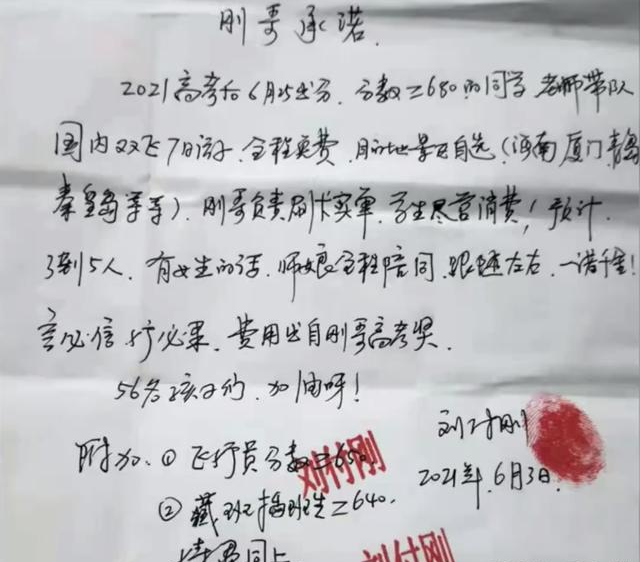 刚哥承诺.
2021高考后6月25出分.分数≥680的同学 老师带队
国内双飞7日游.全程免费.目的地景区自选(海南 厦门 青岛
秦皇岛等等).刚哥负责刷卡买单.学生尽管消费!预计.
3到5人.有女生的话.师娘全程陪同.跟随左右.一诺千金!
言必信 行必果.费用出自刚哥高考奖.
56名孩子们.加油呀!
刘付刚
2021年.6月3日.
附加.①飞行员分数≥650
刘付刚
②藏班插班生≥640.
待遇同上
刘付刚